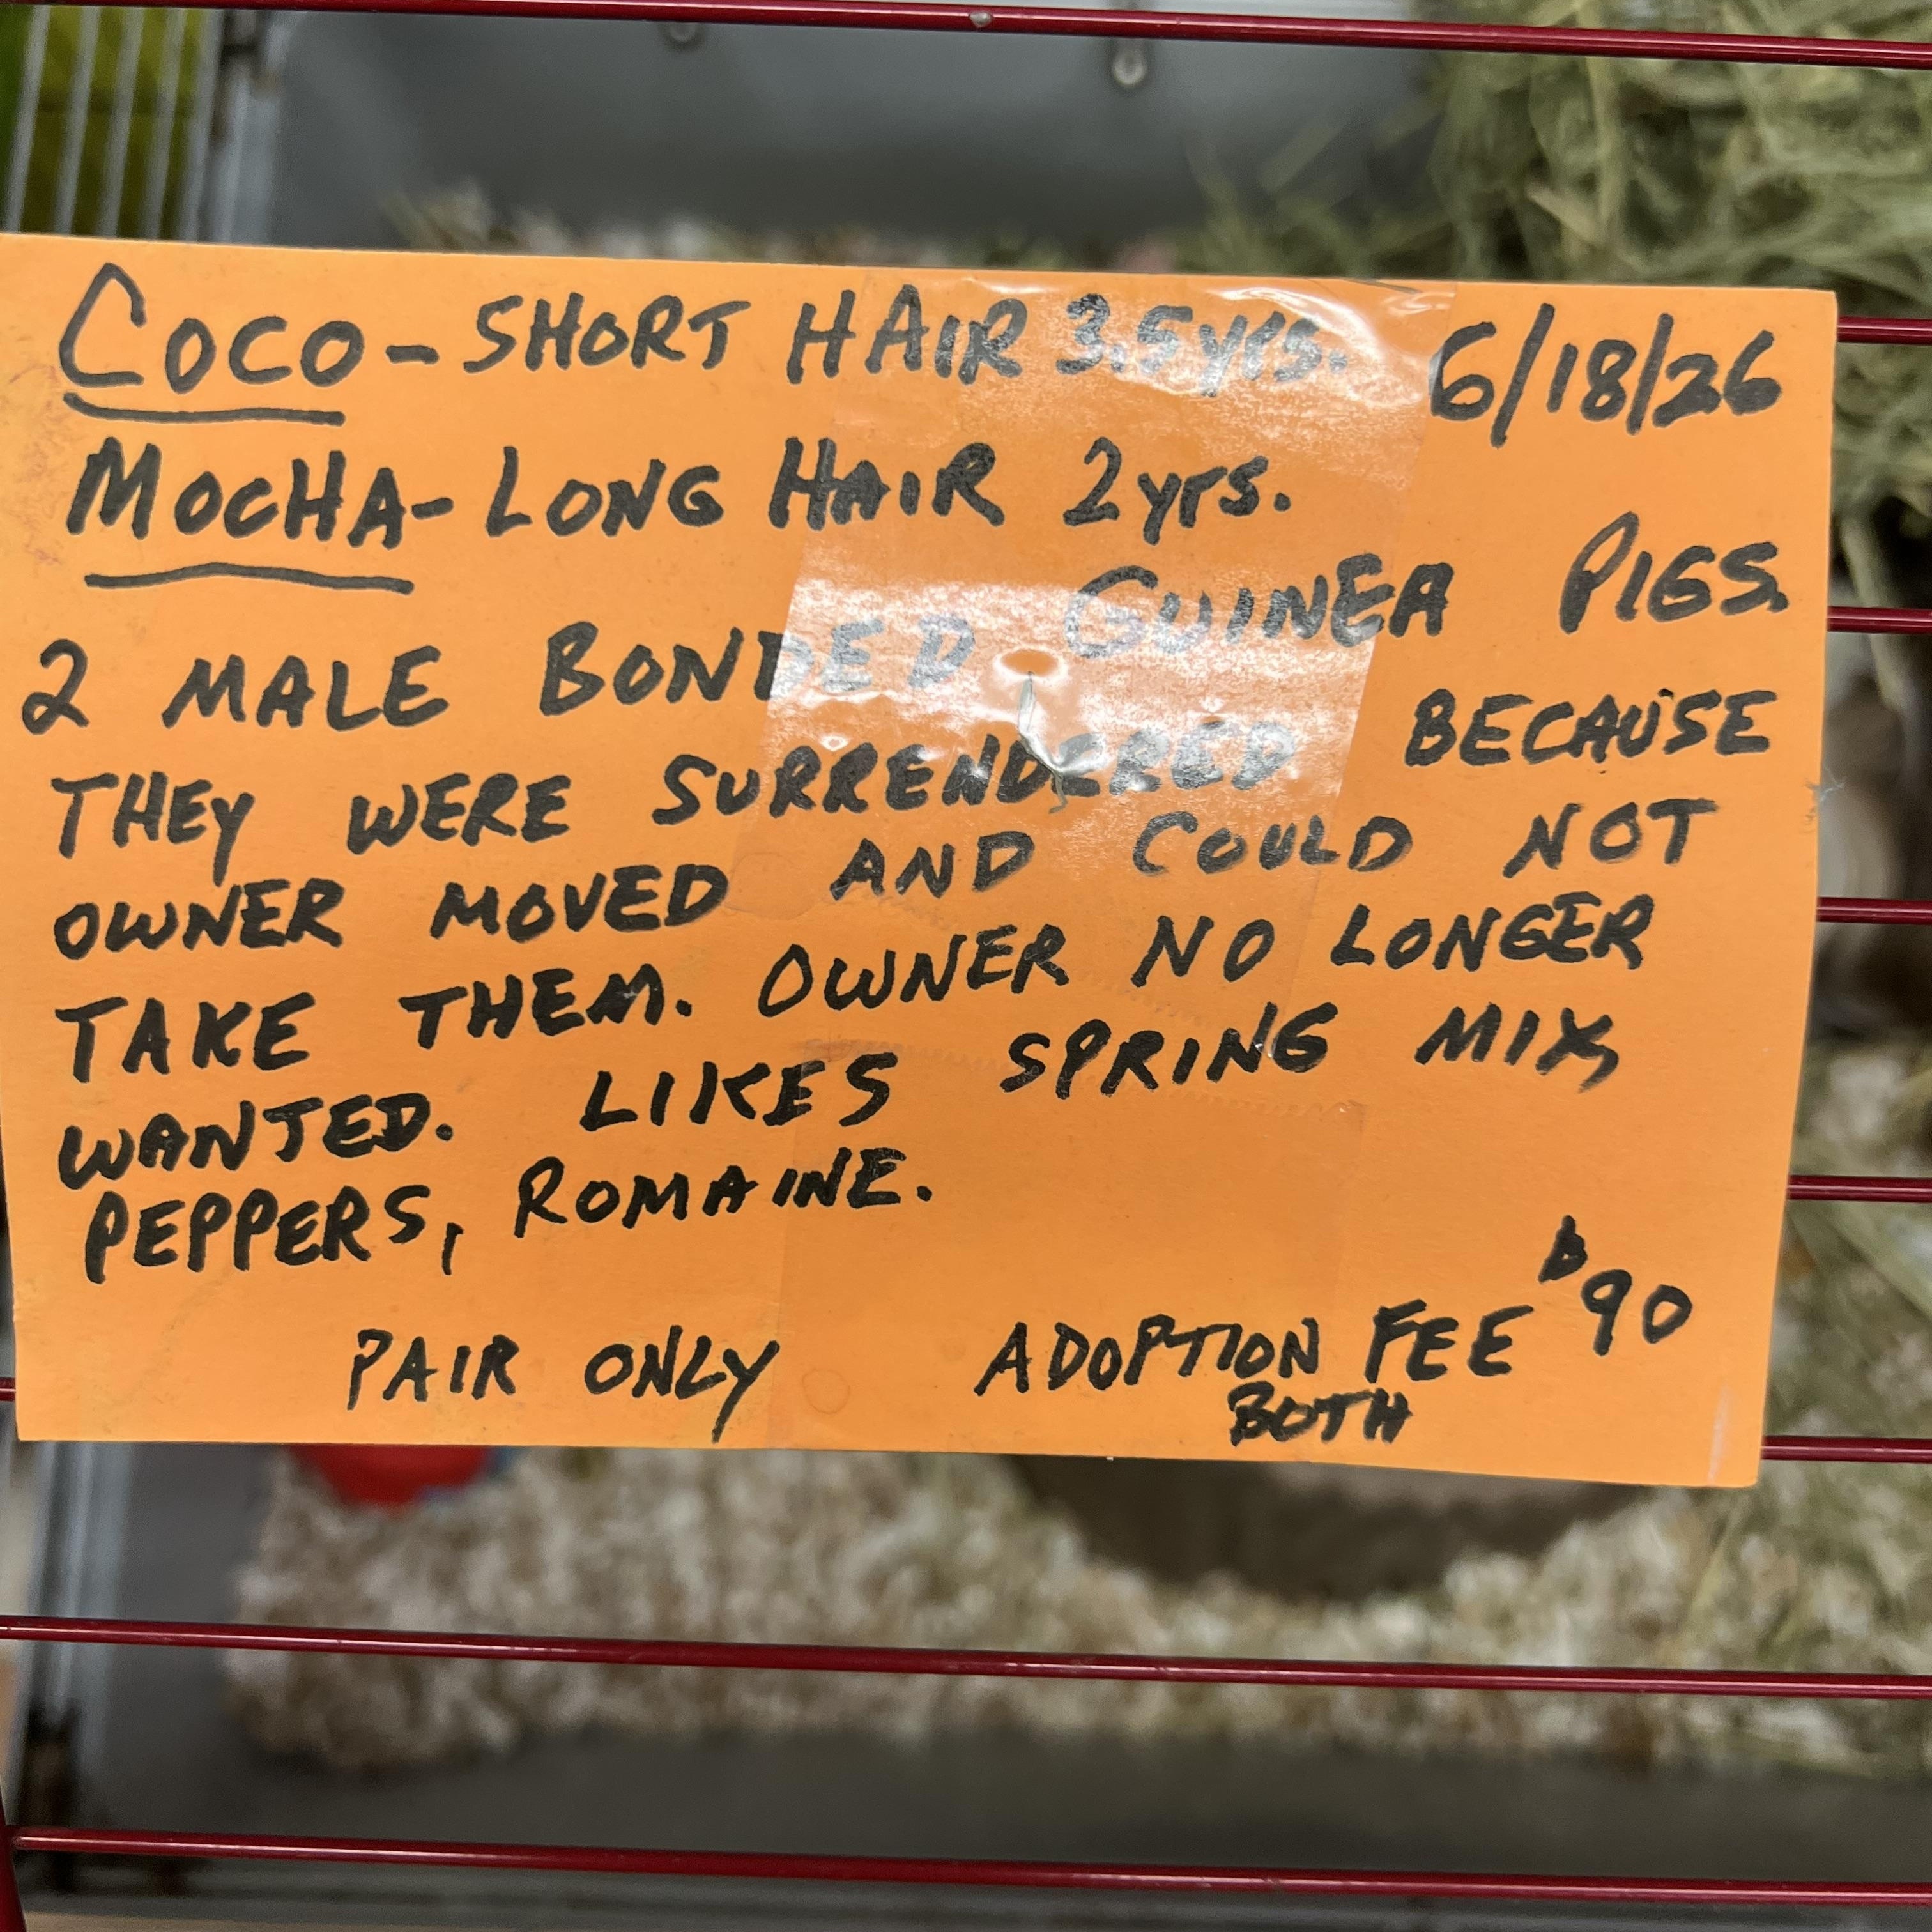 COCO - SHORT HAIR 3.5 yrs. 6/18/26
MOCHA - LONG HAIR 2 yrs.
2 MALE BONDED GUINEA PIGS.
THEY WERE SURRENDERED BECAUSE
OWNER MOVED AND COULD NOT
TAKE THEM. OWNER NO LONGER
WANTED. LIKES SPRING MIX,
PEPPERS, ROMAINE.
PAIR ONLY ADOPTION FEE $90
BOTH